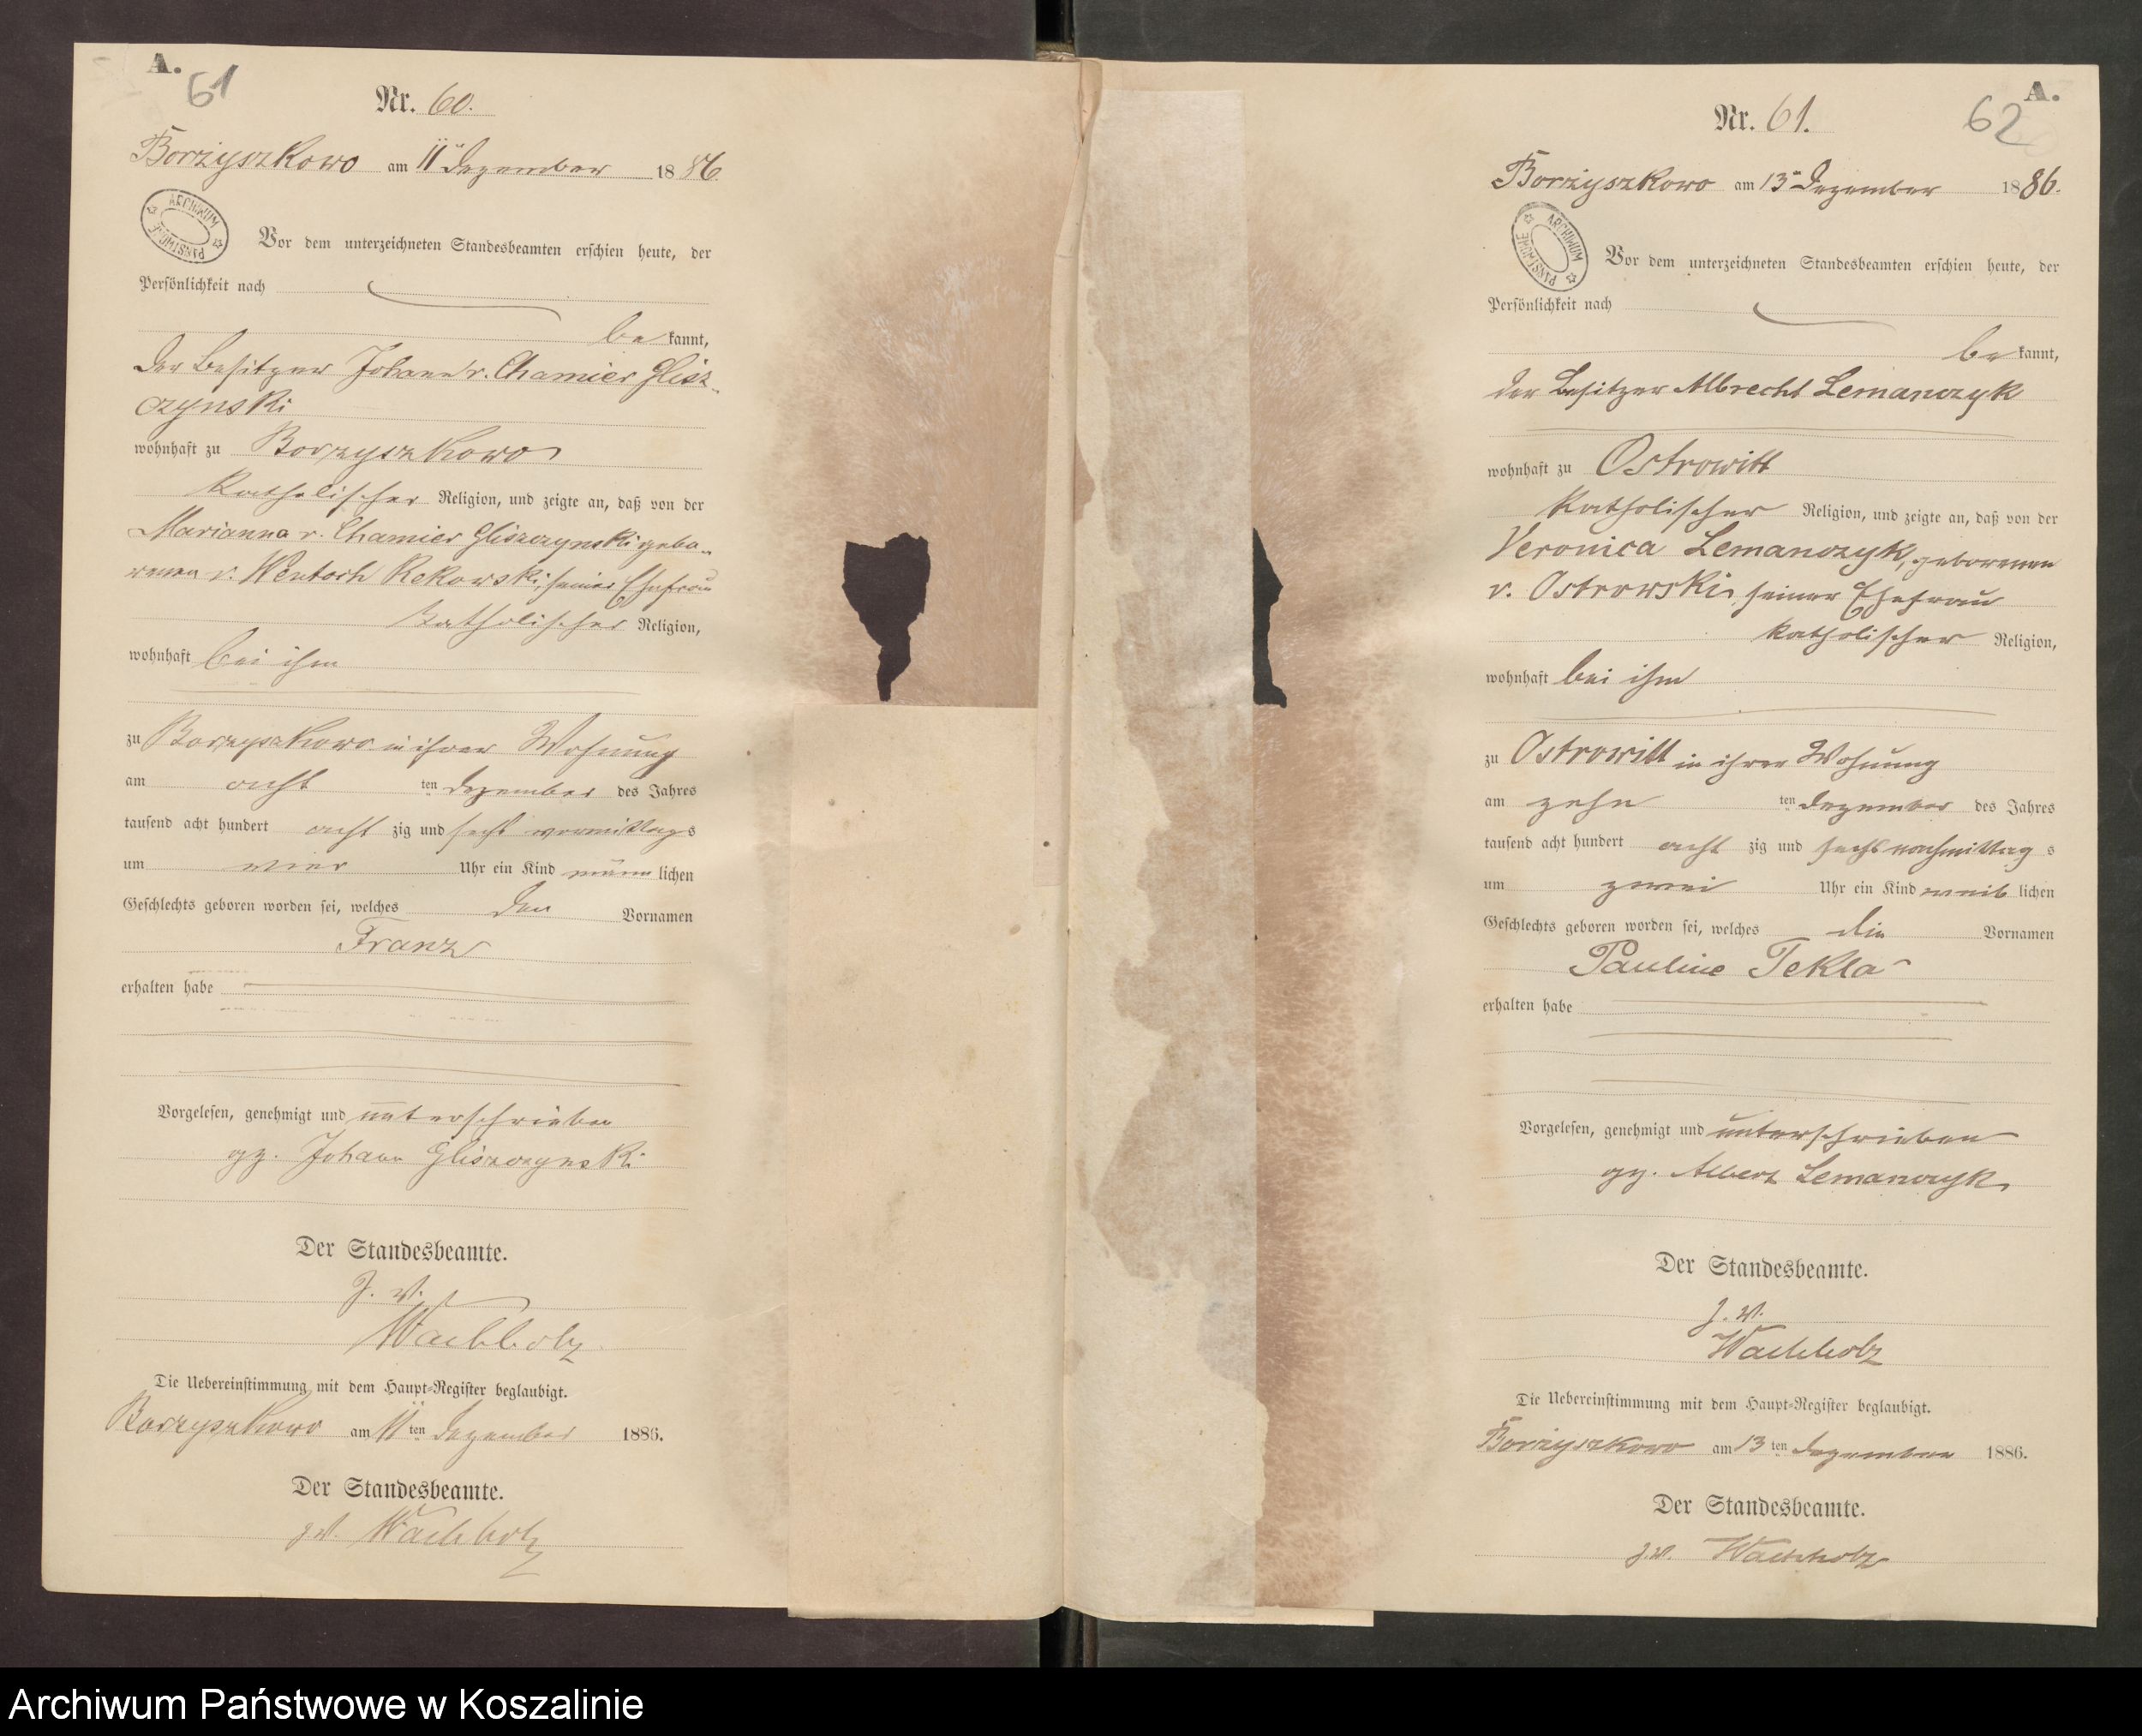 A.
61
Nr. 60.
Borzyszkowo am 11ten Dezember 1886.
ARCHIWUM PAŃSTWOWE
Vor dem unterzeichneten Standesbeamten erschien heute, der
Persönlichkeit nach
be kannt,
der Besitzer Johann v. Chamier Glisz-
czynski
wohnhaft zu Borzyszkowo
katholischer Religion, und zeigte an, daß von der
Marianna v. Chamier Gliszczynski gebo-
renen v. Wentoch Rekowski, seiner Ehefrau
katholischer Religion,
wohnhaft bei ihm
zu Borzyszkowo in ihrer Wohnung
am acht ten Dezember des Jahres
tausend acht hundert acht zig und sechs vormittags
um vier Uhr ein Kind männ lichen
Geschlechts geboren worden sei, welches den Vornamen
Franz
erhalten habe
Vorgelesen, genehmigt und unterschrieben
gz. Johann Gliszczynski
Der Standesbeamte.
J. V.
Wachholz
Die Uebereinstimmung mit dem Haupt-Register beglaubigt.
Borzyszkowo am 11 ten Dezember 1886.
Der Standesbeamte.
J. V. Wachholz
A.
62
Nr. 61.
Borzyszkowo am 13ten Dezember 1886.
ARCHIWUM PAŃSTWOWE
Vor dem unterzeichneten Standesbeamten erschien heute, der
Persönlichkeit nach
be kannt,
der Besitzer Albrecht Lemanczyk
wohnhaft zu Ostrowitt
katholischer Religion, und zeigte an, daß von der
Veronica Lemanczyk, geborenen
v. Ostrowski, seiner Ehefrau
katholischer Religion,
wohnhaft bei ihm
zu Ostrowitt in ihrer Wohnung
am zehn ten Dezember des Jahres
tausend acht hundert acht zig und sechs nachmittag s
um zwei Uhr ein Kind weib lichen
Geschlechts geboren worden sei, welches die Vornamen
Pauline Tekla
erhalten habe
Vorgelesen, genehmigt und unterschrieben
gz. Albert Lemanczyk
Der Standesbeamte.
J. V.
Wachholz
Die Uebereinstimmung mit dem Haupt-Register beglaubigt.
Borzyszkowo am 13 ten Dezember 1886.
Der Standesbeamte.
J. V. Wachholz
Archiwum Państwowe w Koszalinie